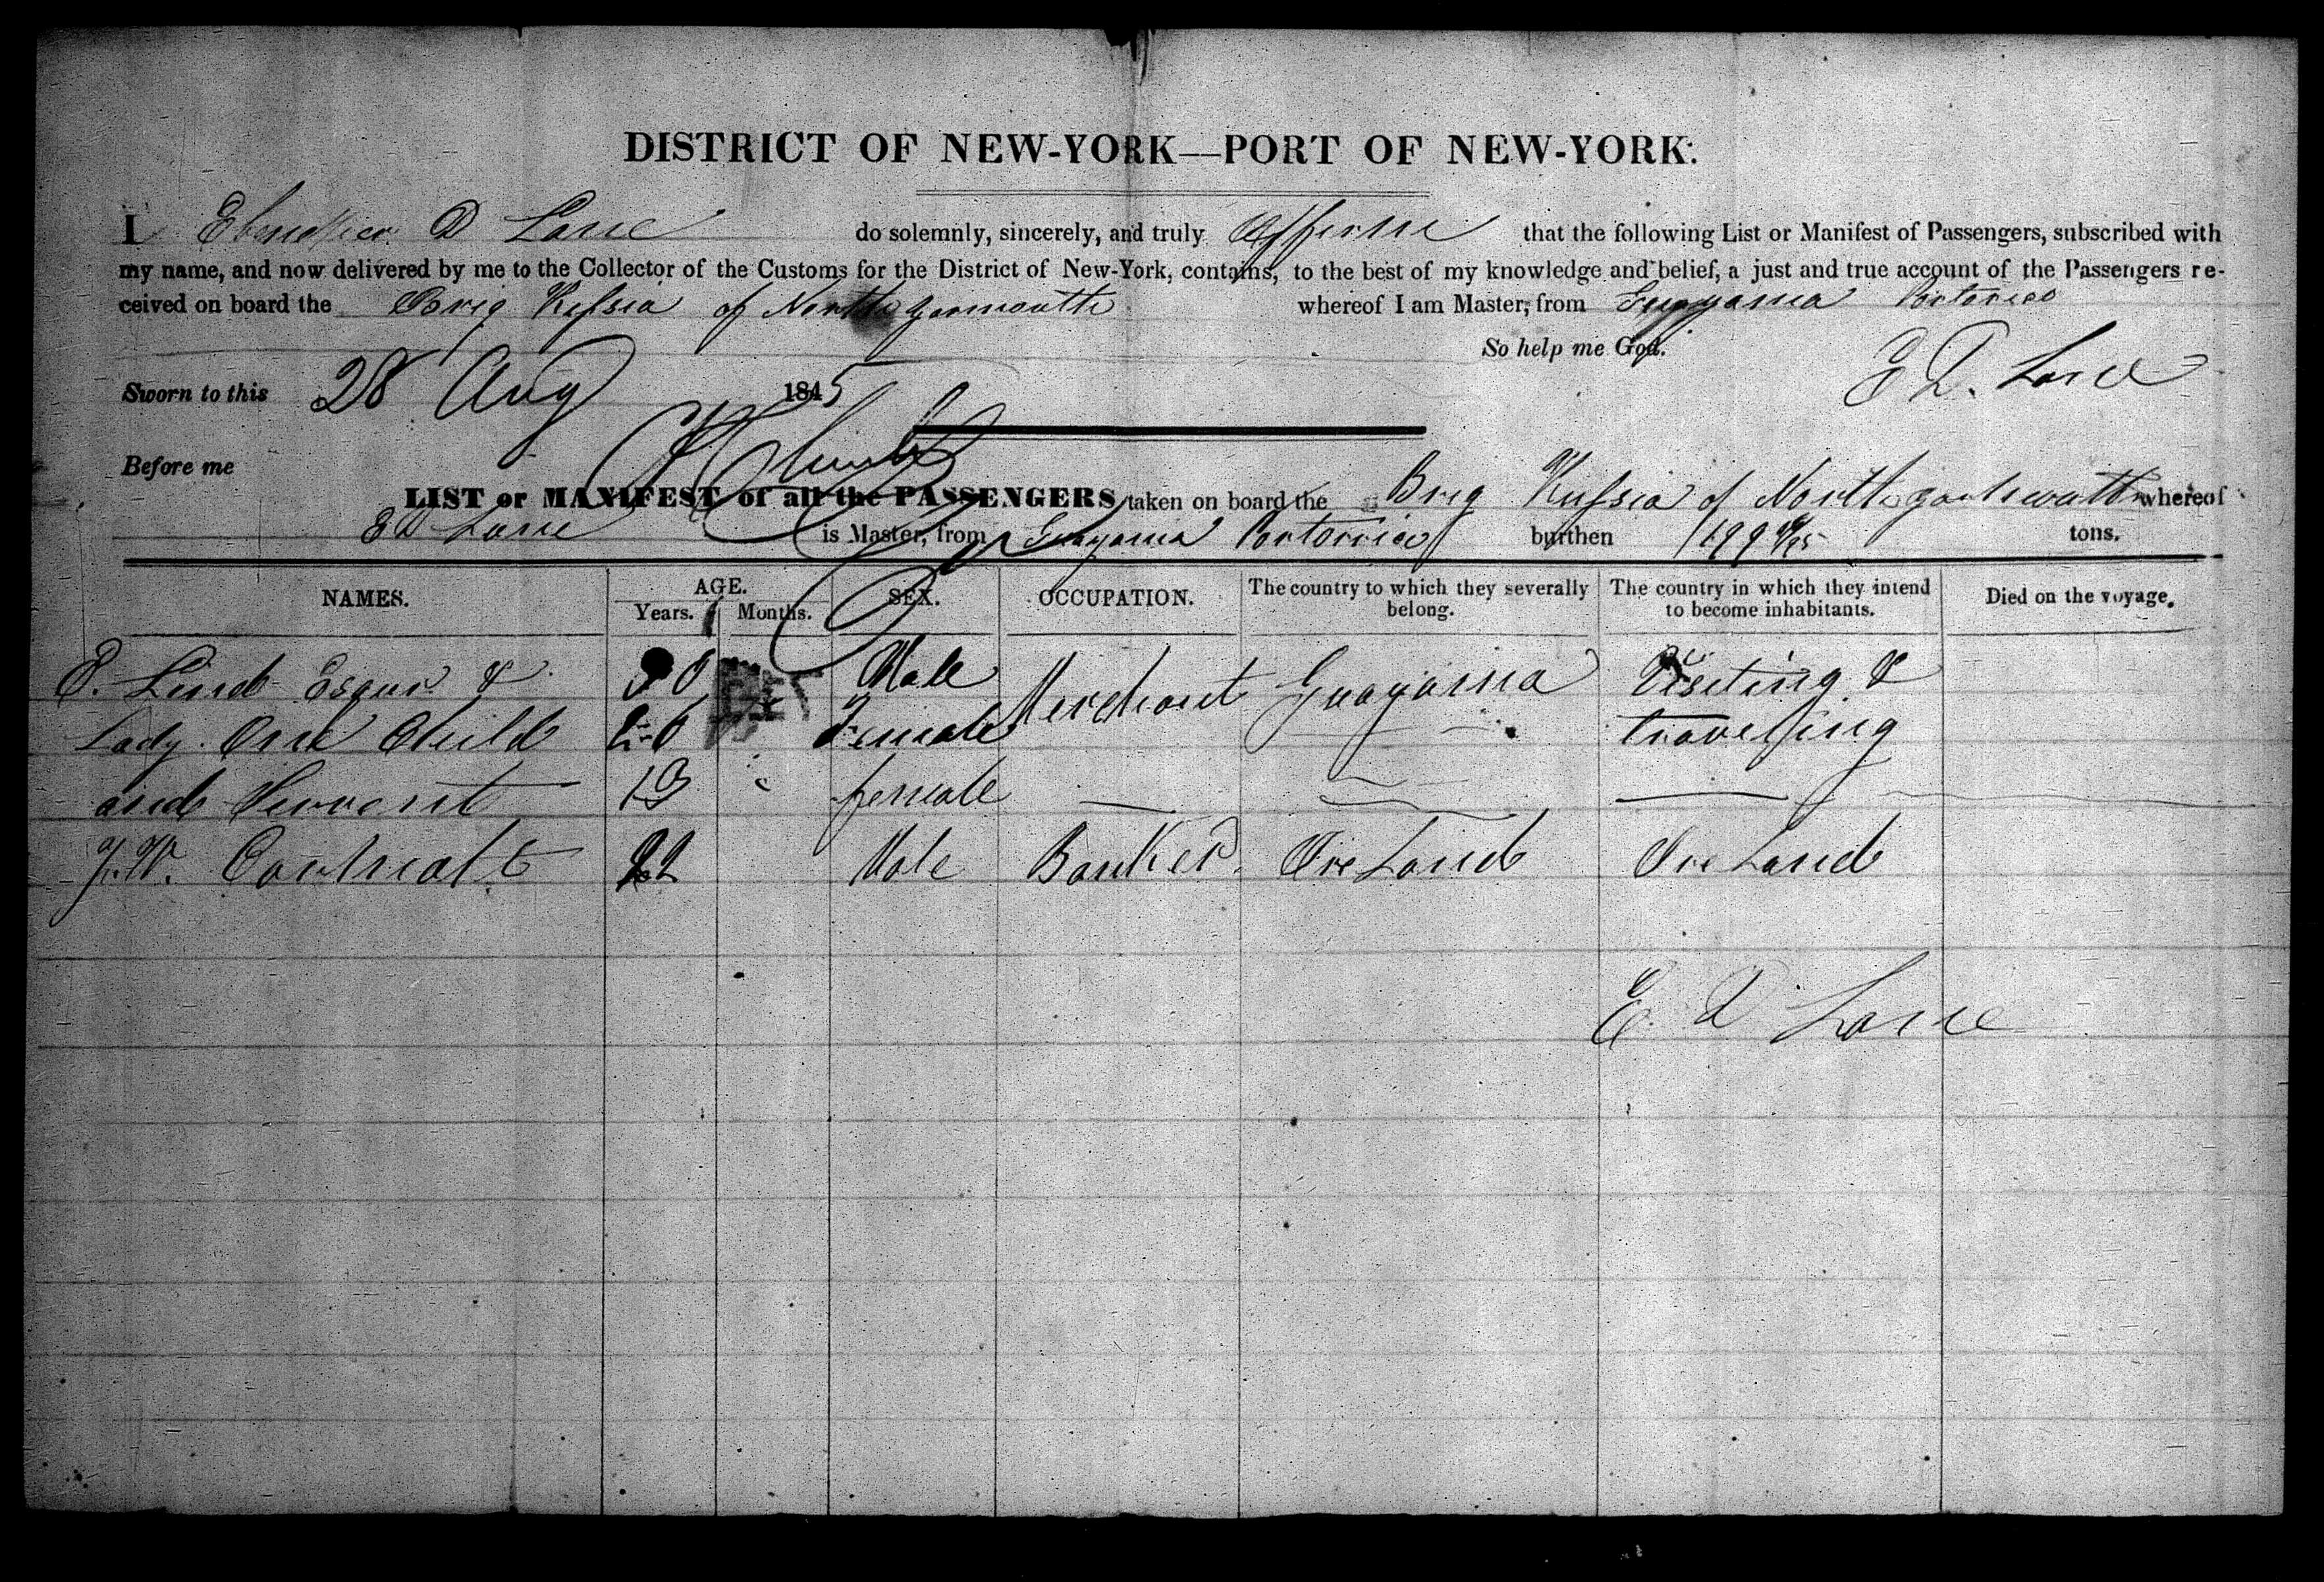 DISTRICT OF NEW-YORK—PORT OF NEW-YORK.
I Ebenezier D Lane do solemnly, sincerely, and truly Afferm that the following List or Manifest of Passengers, subscribed with
my name, and now delivered by me to the Collector of the Customs for the District of New-York, contains, to the best of my knowledge and belief, a just and true account of the Passengers re-
ceived on board the Brig of North yarmouth whereof I am Master, from Guayama Portorico
So help me God.
E D. Lane
Sworn to this 28 Aug 1845
Before me
LIST or MANIFEST of all the PASSENGERS taken on board the Brig of North whereof
E D Lane is Master, from Guayama Portorico burthen 199 tons.
NAMES. AGE. Years. Months. SEX. OCCUPATION. The country to which they severally belong. The country in which they intend to become inhabitants. Died on the voyage.
Lind Esqur & 30 Male Merchant Guayama Visiting &
Lady One Child 20 Female travelling
and Servant 13 female
22 Male Banker IreLand IreLand
E. D Lane